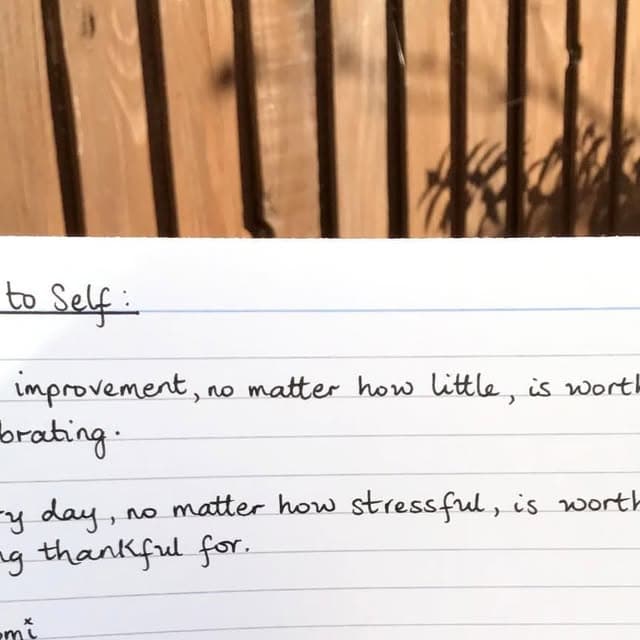 to Self:
improvement, no matter how little, is worth
brating.
ry day, no matter how stressful, is worth
ng thankful for.
omi